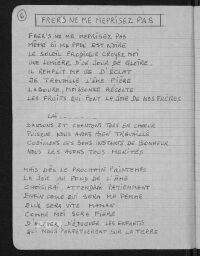 6
FRERS NE ME MEPRISEZ PAS
FRER'S NE ME MEPRISEZ PAS
MÊME SI MA PEAU EST NOIRE
LE SOLEIL PRODIGUE CROYEZ MOI
UNE LUMIÈRE D'UN JOUR DE GLOIRE
IL REMPLIT MA VIE D'ÉCLAT
DE TRAVAILLE L'ÂME FIÈRE
LABOURE, MOISSONNE RÉCOLTE
LES FRUITS QUI FONT LA JOIE DE MES FRÈRES
LÀ
DANSONS ET CHANTONS TOUS EN CHŒUR
PUISQUE NOUS AVONS BIEN TRAVAILLÉ
CUEILLONS LES BONS INSTANTS DE BONHEUR
NOUS LES AVONS TOUS MÉRITÉS
MAIS DÈS LE PROCHAIN PRINTEMPS
LA JOIE AU FOND DE L'ÂME
CHOISIRA ATTENDANT PATIEMMENT
CELLE QUI SERA MA FEMME
ELLE SERA VITE MAMAN
COMME MOI SERA FIÈRE
D'ÉDUQUER LES ENFANTS
QUI NOUS SUR LA TERRE